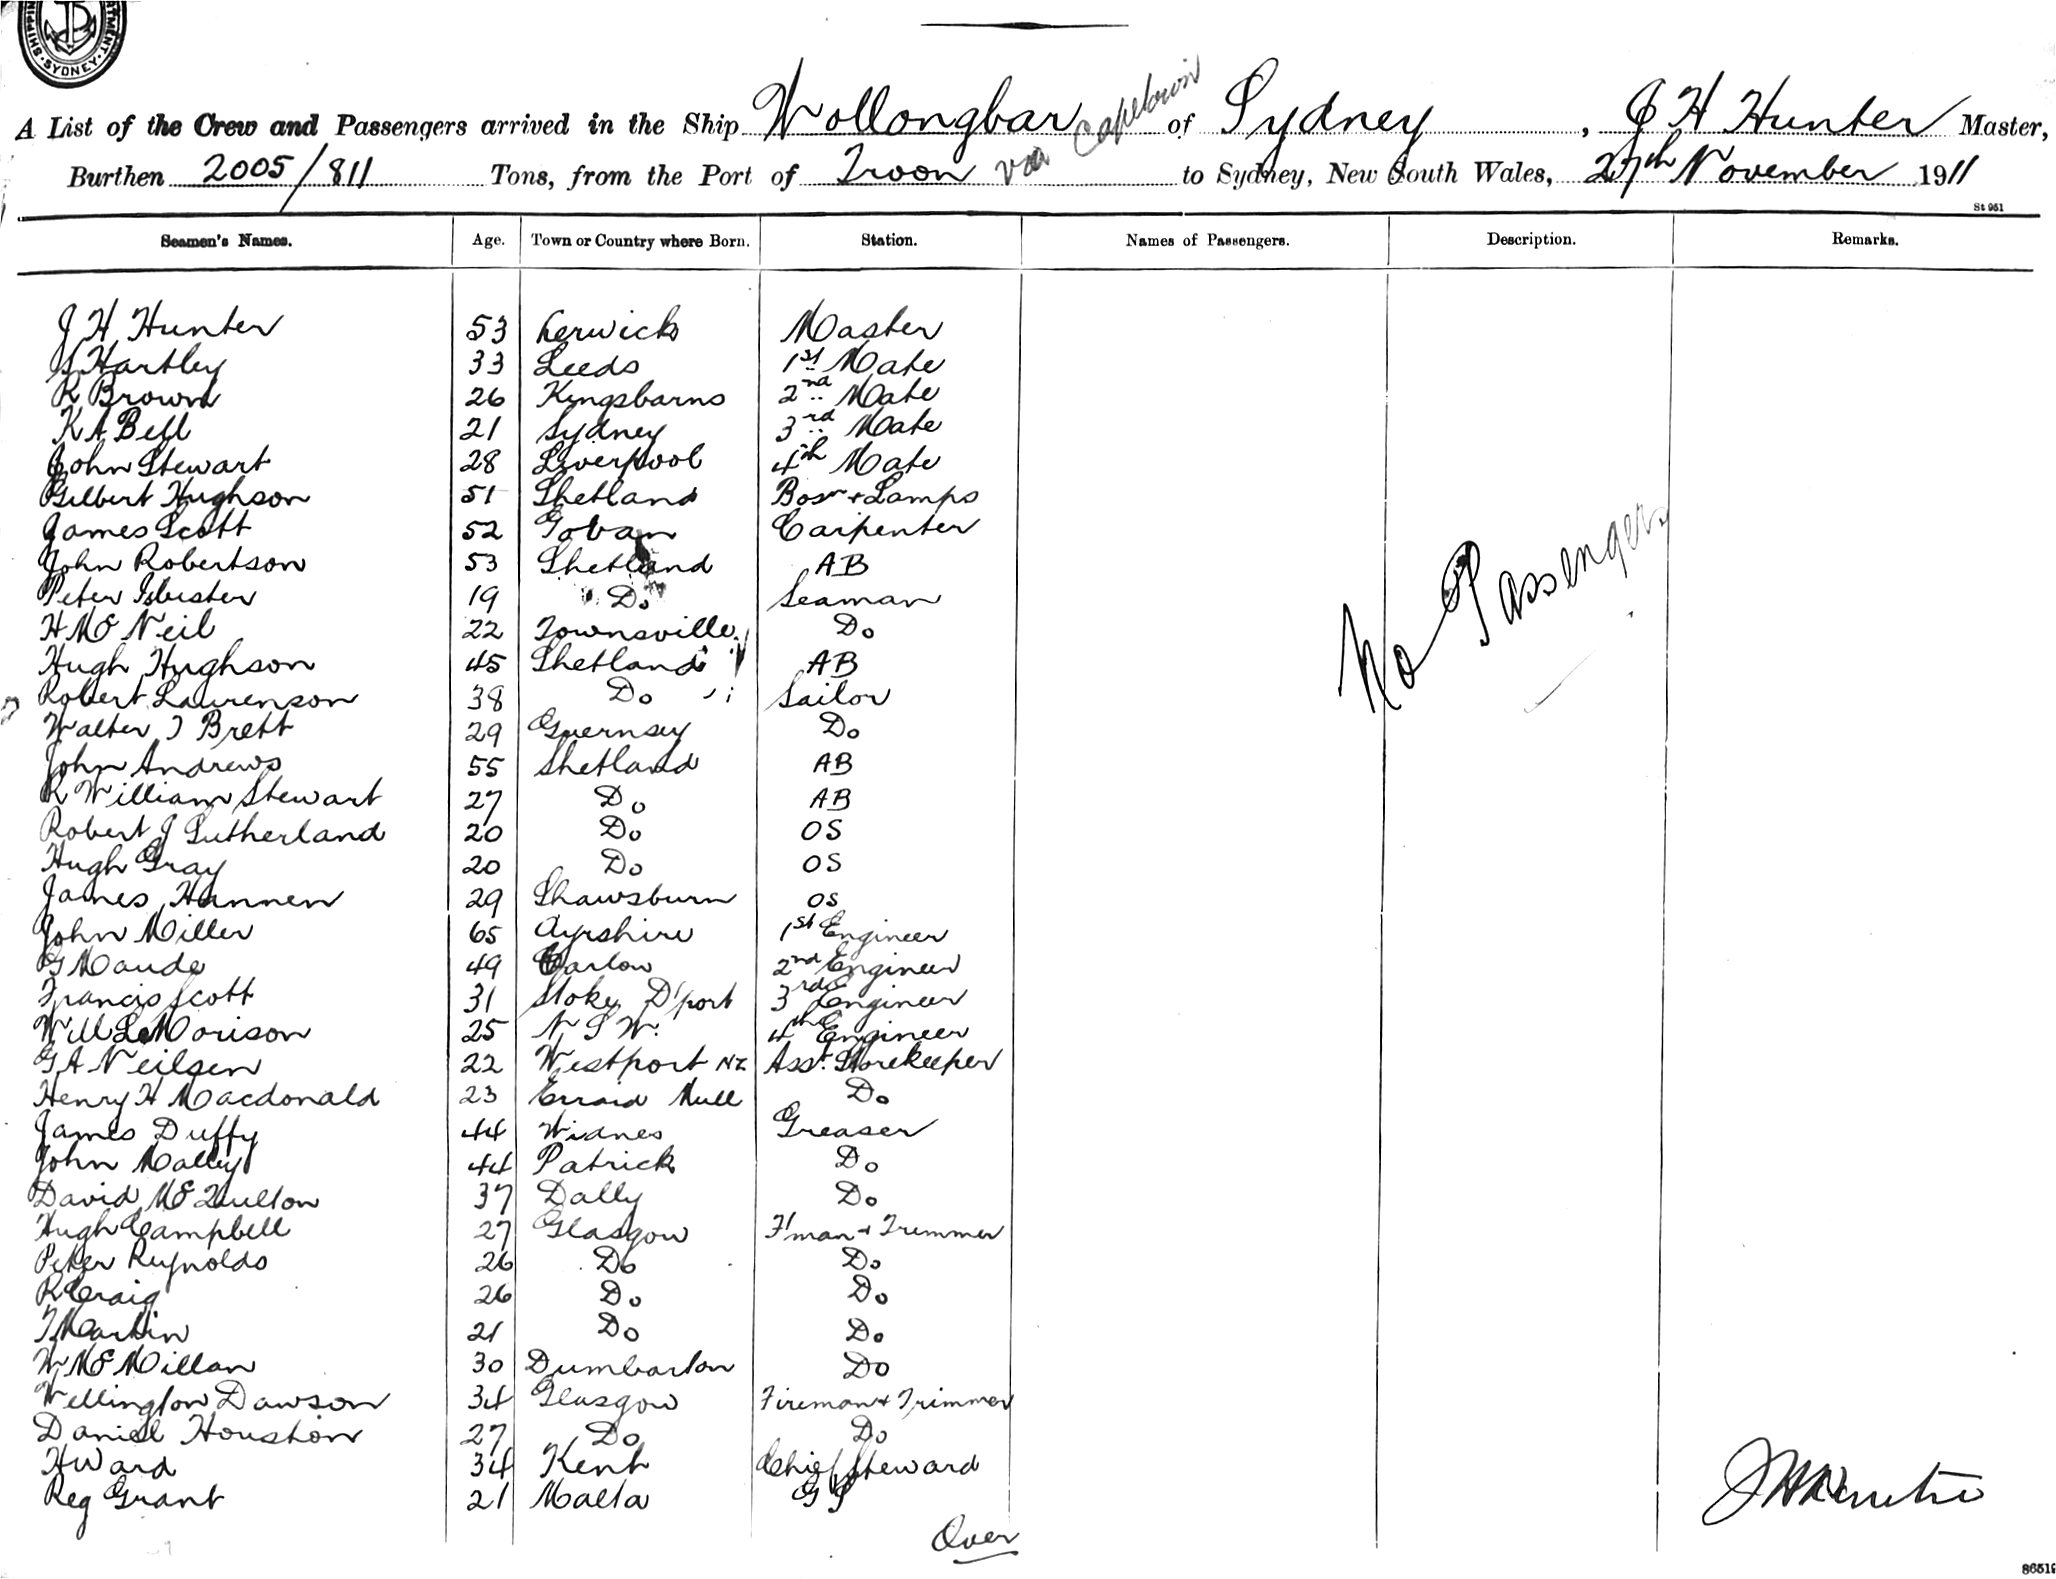 SHIPPING
SYDNEY
A List of the Crew and Passengers arrived in the Ship Wollongbar of Sydney, J H Hunter Master,
via Capetown
Burthen 2005/811 Tons, from the Port of Troon to Sydney, New South Wales, 27th November 1911
St 951
Seamen's Names. Age. Town or Country where Born. Station. Names of Passengers. Description. Remarks.
J H Hunter 53 Lerwick Master
S Hartley 33 Leeds 1st Mate
R Brown 26 Kingsbarns 2nd Mate
K A Bell 21 Sydney 3rd Mate
John Stewart 28 Liverpool 4th Mate
Gilbert Hughson 51 Shetland Bosn + Lamps
James Scott 52 Govan Carpenter
John Robertson 53 Shetland AB
Peter Isbister 19 Do Seaman
H McNeil 22 Townsville Do
Hugh Hughson 45 Shetland AB
Robert Laurenson 38 Do Sailor
Walter T Brett 29 Guernsey Do
John Andrews 55 Shetland AB
R William Stewart 27 Do AB
Robert J Sutherland 20 Do OS
Hugh Gray 20 Do OS
James Hannen 29 Shawsburn OS
John Miller 65 Ayrshire 1st Engineer
G Maude 49 Carlow 2nd Engineer
Francis Scott 31 Stoke D'port 3rd Engineer
Will Morison 25 N S W. 4th Engineer
G A Neilsen 22 Westport NZ Asst. Storekeeper
Henry H Macdonald 23 Erraid Mull Do
James Duffy 44 Widnes Greaser
John Malley 44 Patrick Do
David McQuilton 37 Dally Do
Hugh Campbell 27 Glasgow F'man + Trimmer
Peter Reynolds 26 Do Do
R Craig 26 Do Do
T Martin 21 Do Do
W McMillan 30 Dumbarton Do
Wellington Dawson 34 Glasgow Fireman + Trimmer
Daniel Houston 27 Do Do
H Ward 34 Kent Chief Steward
Reg Grant 21 Malta G S
No Passengers
J H Hunter
Over
86519